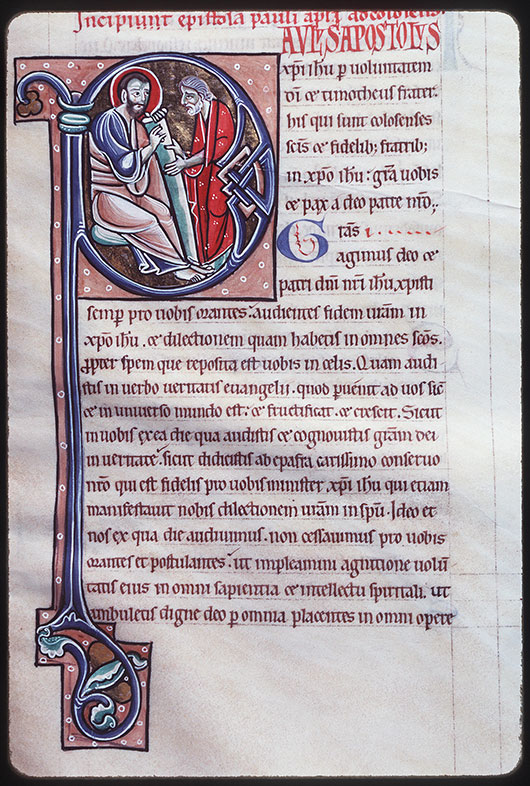 Incipiunt epistola pauli apĺi ad colosens.
AVLꝰ APOSTOLVS
xp̄i ihu ꝑ voluntatem
dī et timotheus frater.
his qui sunt colosenses
sc̄is et fidelib; fratrib;
in xp̄o ihu: gr̄a vobis
et pax a deo patre nr̄o.
Gr̄as
agimus deo et
patri dn̄i nr̄i ihu xp̄isti
semꝑ pro vobis orantes. audientes fidem ur̄am in
xp̄o ihu. et dilectionem quam habetis in omnes sc̄os.
ꝓpter spem que reposita est uobis in celis. Quam audi
stis in verbo veritatis evangelii. quod ꝑuenit ad uos sic̄
et in universo mundo est: et fructificat. et crescit. Sicut
in uobis ex ea die qua audistis et cognouistis gr̄am dei
in ueritate. sicut didicistis ab epafra carissimo conseruo
nr̄o qui est fidelis pro uobis minister. xp̄i ihu qui etiam
manifestauit nobis dilectionem ur̄am in spū. Ideo et
nos ex qua die audiuimus. non cessamus pro uobis
orantes et postulantes. ut impleamini agnitione uolū
tatis eius in omni sapientia et intellectu spiritali. ut
ambuletis digne deo ꝑ omnia placentes in omni opere